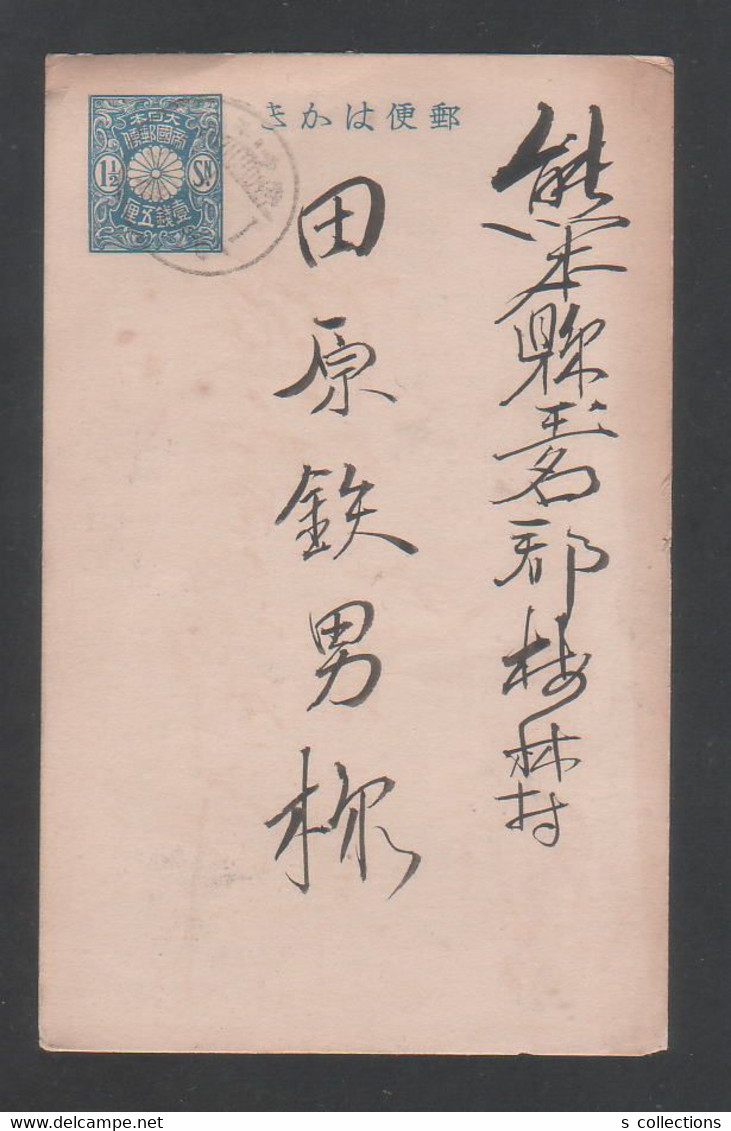 郵便はかき
大日本
帝國郵便
1½ Sn
壹錢五厘
熊本縣玉名郡梅林村
田原鉄男様
s collections